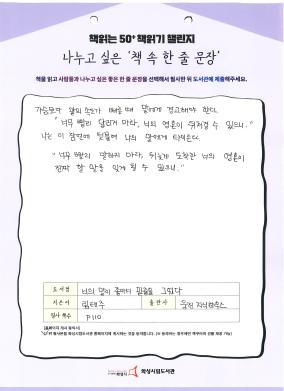 책읽는 50+ 책읽기 챌린지
나누고 싶은 '책 속 한 줄 문장'
책을 읽고 사람들과 나누고 싶은 좋은 한 줄 문장을 선택해서 필사한 뒤 도서관에 제출해주세요.
가슴보다 말의 속도가 빠를 때 들에게 경고해야 한다.
"너무 빨리 달리게 마라, 너의 영혼이 뒤처질 수 있으니."
나는 이 잠언에 덧붙여 너의 말에게 타이른다.
"너무 빨리 말하지 마라, 뒤늦게 도착한 너의 영혼이
진짜 할 말을 잃게 될 수 있으니."
도서명 너의 말이 좋아서 밑줄을 그었다
지은이 림태주 출판사 웅진 지식하우스
필사 쪽수 P110
(홈페이지 게시 동의서)
화성시
화성시립도서관